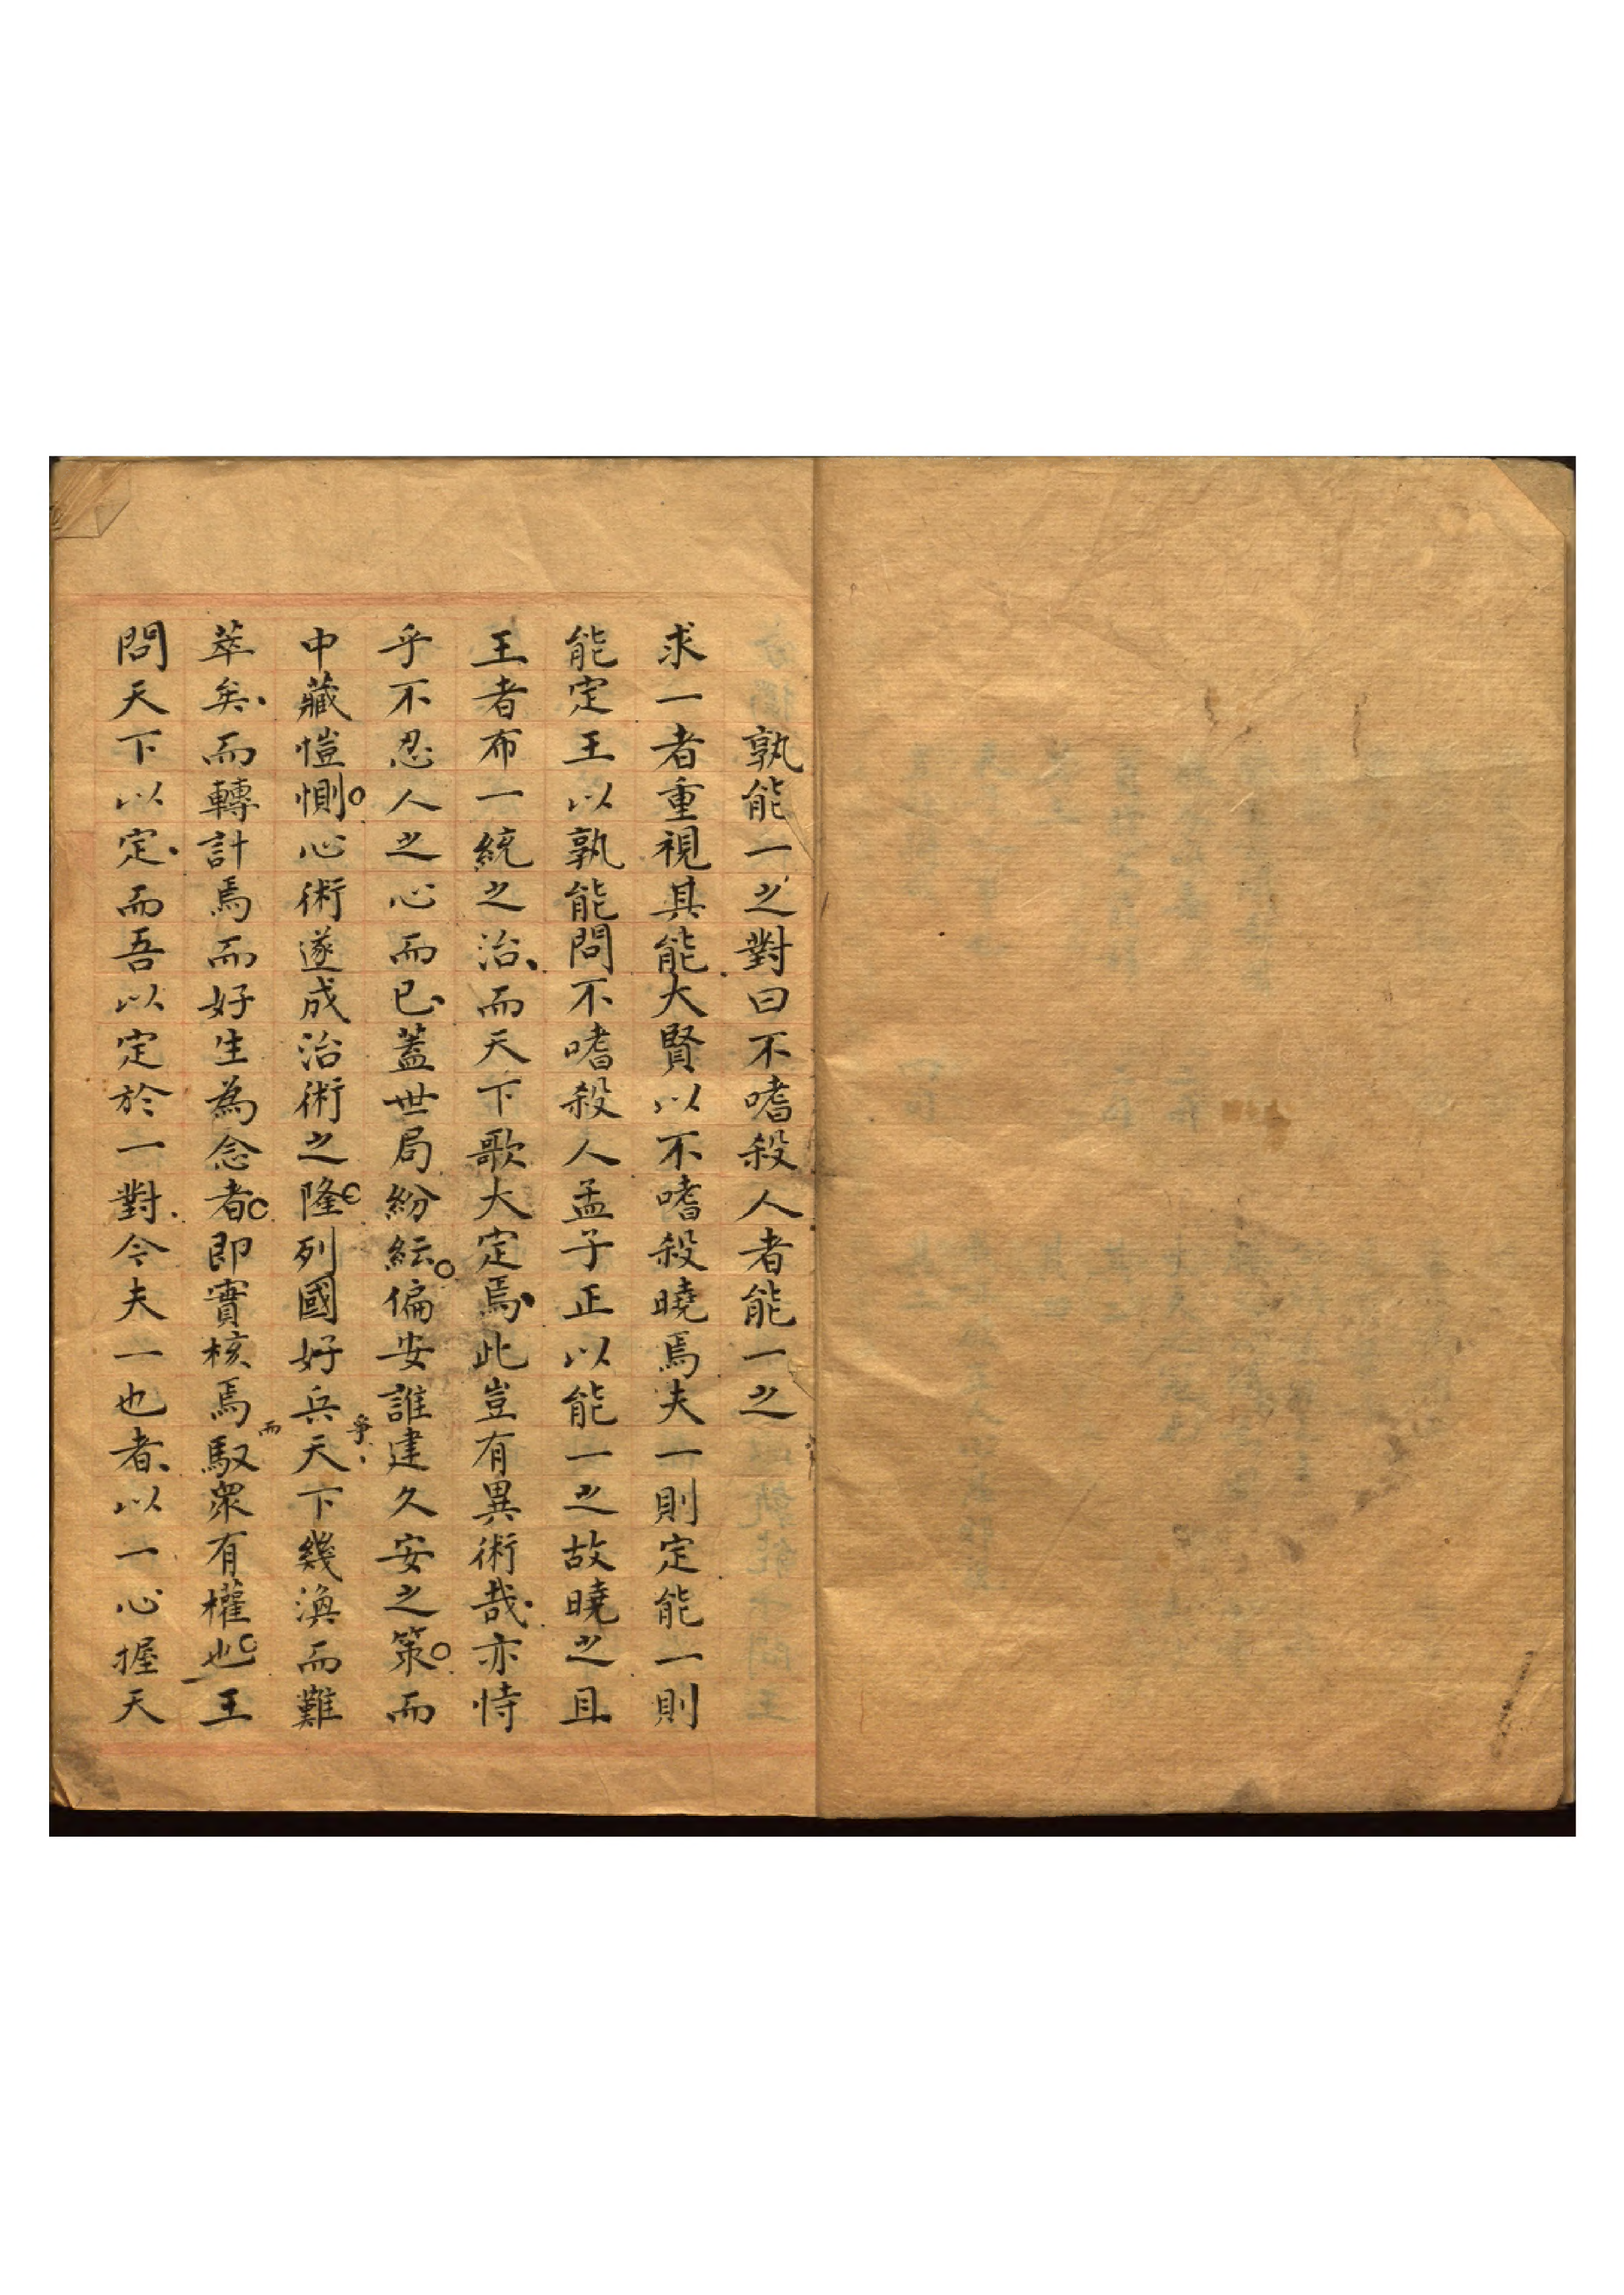 孰能一之對曰不嗜殺人者能一之
求一者重視其能大賢以不嗜殺曉焉夫一則定能一則
能定王以孰能問不嗜殺人孟子正以能一之故曉之且
王者布一統之治而天下歌大定焉此豈有異術哉亦恃
乎不忍人之心而已蓋世局紛紜偏安誰建久安之策而
中藏愷惻心術遂成治術之隆列國好兵爭天下幾渙而難
萃矣而轉計焉而好生為念者即實核焉而馭眾有權也王
問天下以定而吾以定於一對今夫一也者以一心握天